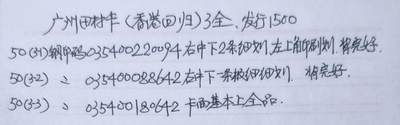 广州田村卡（香港回归）3全，发行1500
50（3-1）钢印码035400220094右中下2条细划，左上角印刷划，背完好。
50（3-2） 〃 035400088642右中下一条极细细划，背完好。
50（3-3） 〃 035400180642卡面基本上全品。